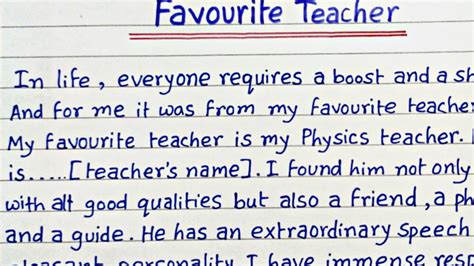 Favourite Teacher
In life, everyone requires a boost and a
And for me it was from my favourite
My favourite teacher is my Physics teacher.
is.....[teacher's name]. I found him not only
with all good qualities but also a friend, a
and a guide. He has an extraordinary speech
personality I have immense